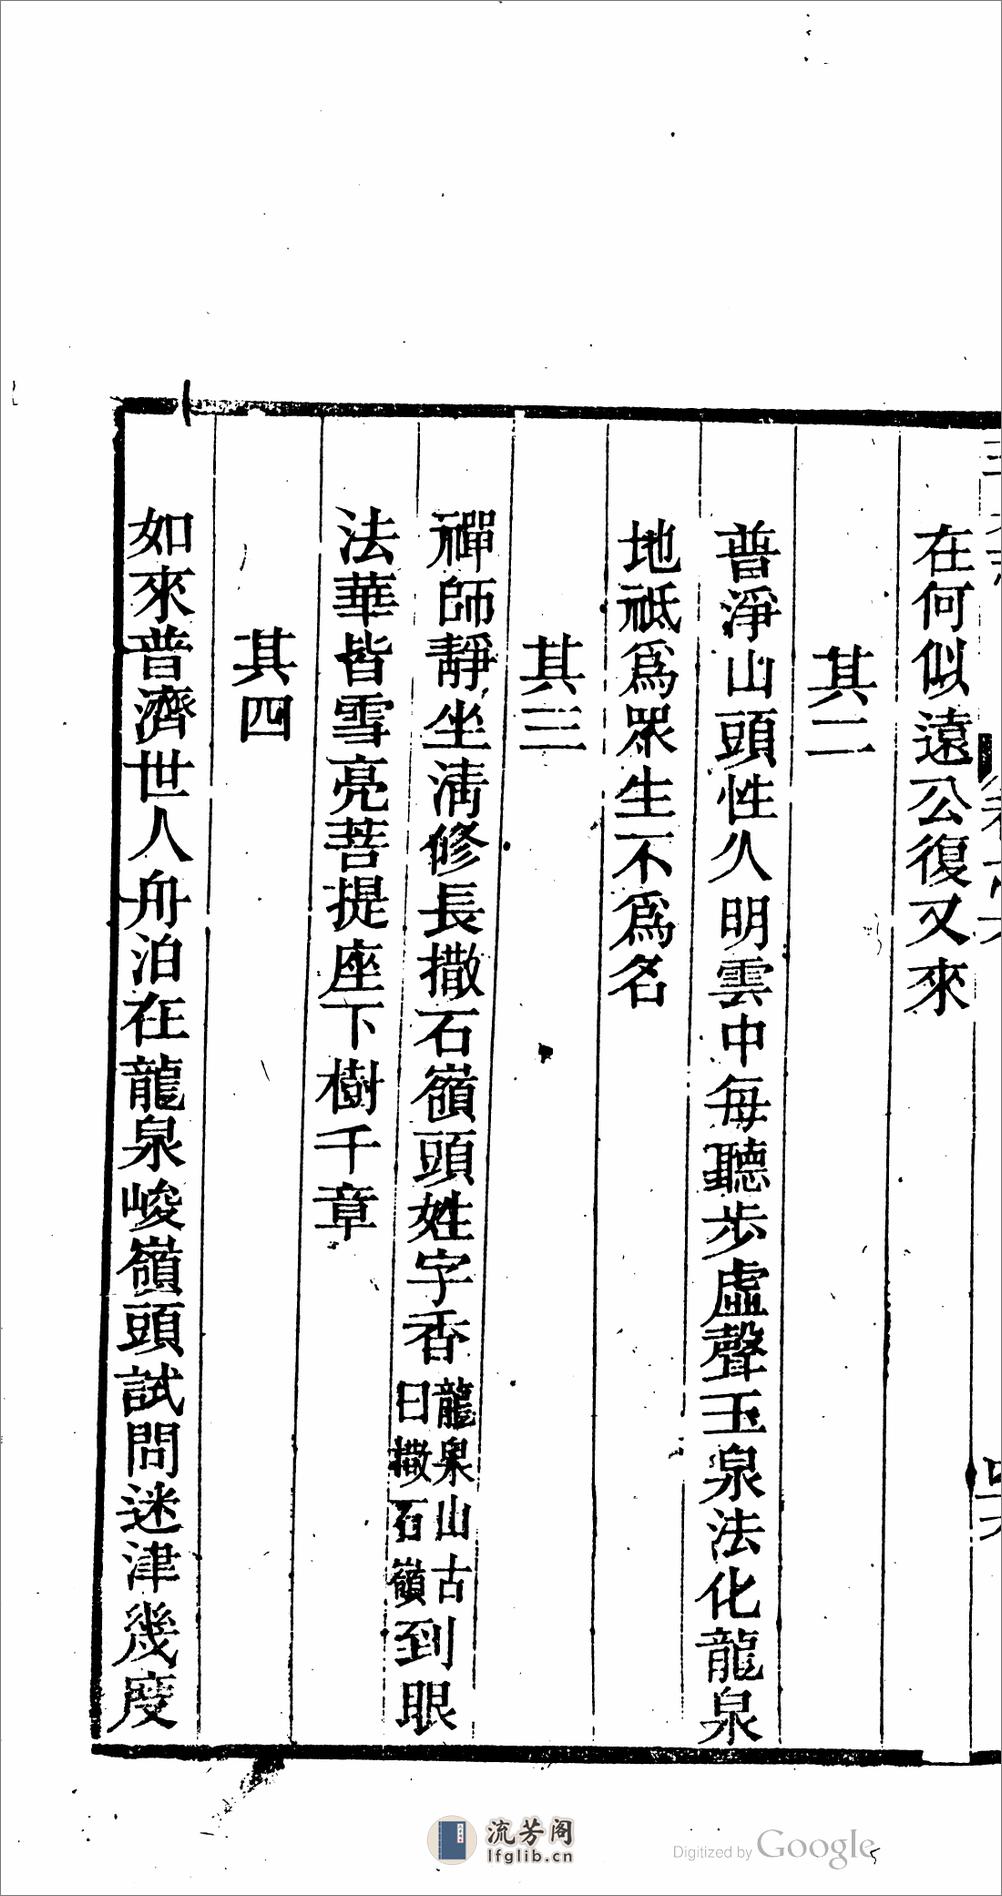 在何似遠公復又來
其二
普淨山頭性久明雲中每聽步虛聲玉泉法化龍泉
地祗爲眾生不爲名
其三
禪師靜坐淸修長撒石嶺頭姓字香龍泉山古曰撒石嶺到眼
法華皆雪亮菩提座下樹千章
其四
如來普濟世人舟泊在龍泉峻嶺頭試問迷津幾度
流芳阁
lfglib.cn
Digitized by Google